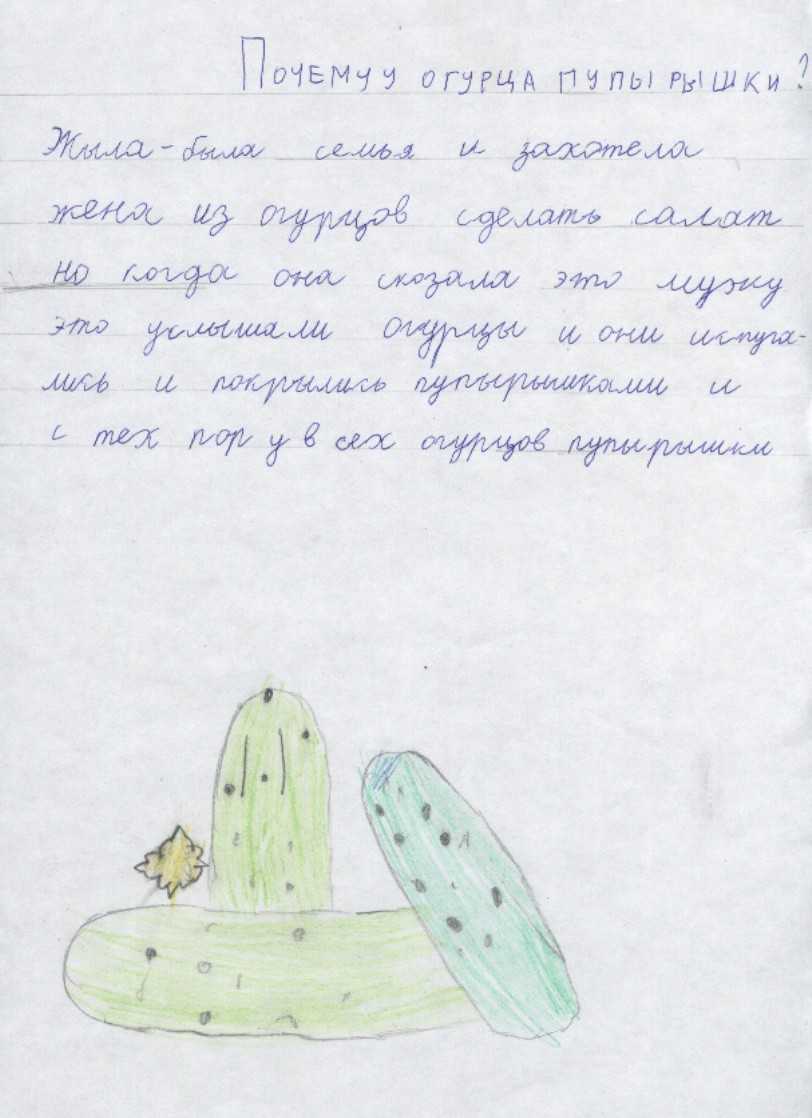 Почему у огурца пупырышки?
Жыла-была семья и захотела
жена из огурцов сделать салат
но когда она скозала это мужу
это услышали огурцы и они испуга-
лись и покрылись пупырышками и
с тех пор у всех огурцов пупырышки